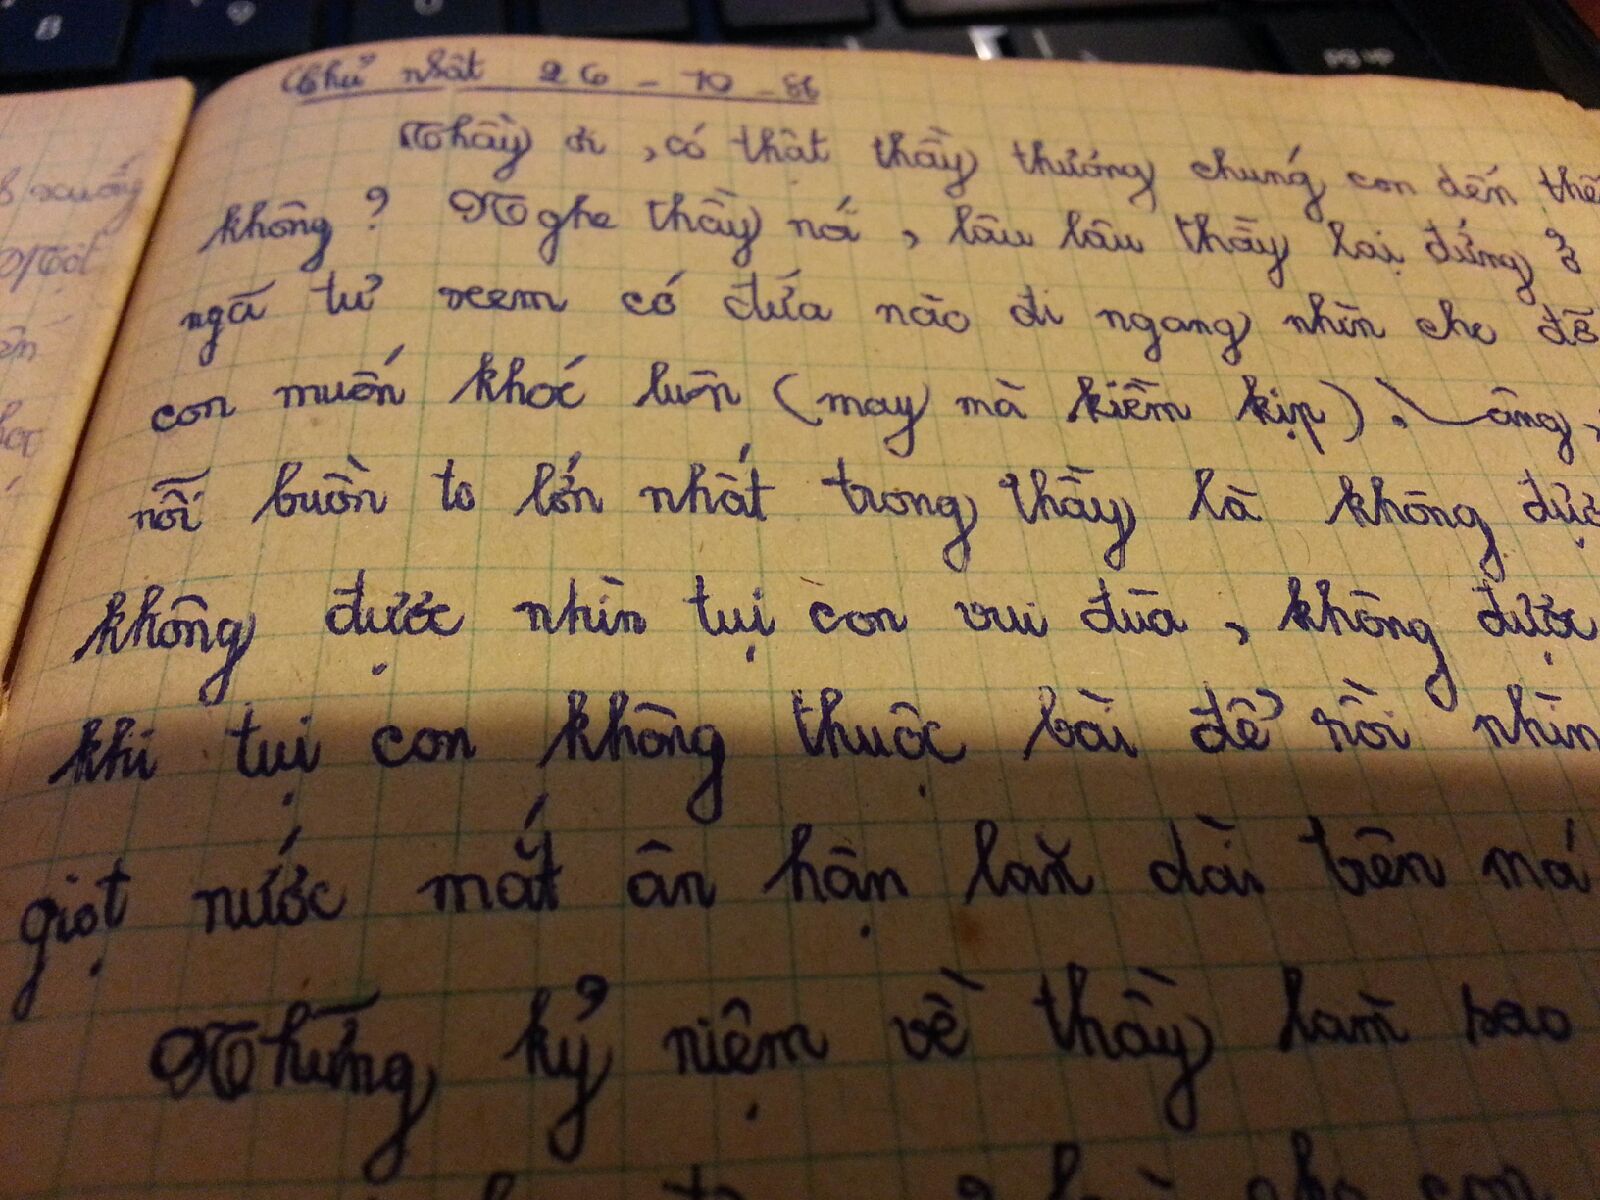 Chủ nhật 26 - 10 - 86
Thầy ơi, có thật thầy thương chúng con đến thế
không? Nghe thầy nói, lâu lâu thầy lại đứng ở
ngã tư xem có đứa nào đi ngang nhìn cho đỡ
con muốn khóc luôn (may mà kiềm kịp). Vâng,
nỗi buồn to lớn nhất trong thầy là không được
không được nhìn tụi con vui đùa, không được
khi tụi con không thuộc bài để rồi nhìn
giọt nước mắt ân hận lăn dài trên má
Những kỷ niệm về thầy làm sao
xuống
Một